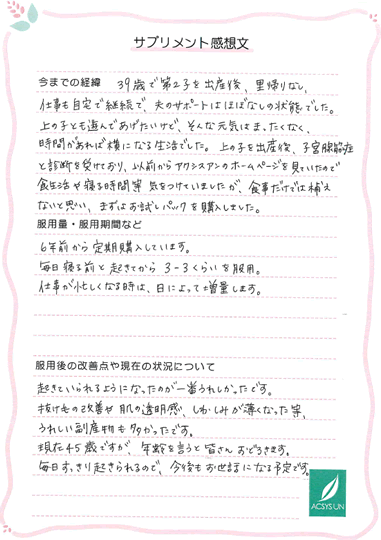 サプリメント感想文
今までの経緯　39歳で第2子を出産後、里帰りなし、
仕事も自宅で継続で、夫のサポートはほぼなしの状態でした。
上の子とも遊んであげたいけど、そんな元気はまったくなく、
時間があれば横になる生活でした。上の子を出産後、子宮腺筋症
と診断を受けており、以前からアクシスアンのホームページを見ていたので
食生活や寝る時間等 気をつけていましたが、食事だけでは補え
ないと思い、まずはお試しパックを購入しました。
服用量・服用期間など
6年前から定期購入しています。
毎日寝る前と起きてから 3-3くらいを服用。
仕事が忙しくなる時は、日によって増量します。
服用後の改善点や現在の状況について
起きていられるようになったのが一番うれしかったです。
抜け毛の改善や肌の透明感、しわ・しみが薄くなった等、
うれしい副産物も多かったです。
現在45歳ですが、年齢を言うと皆さんおどろきます。
毎日すっきり起きられるので、今後もお世話になる予定です。
ACSYS UN